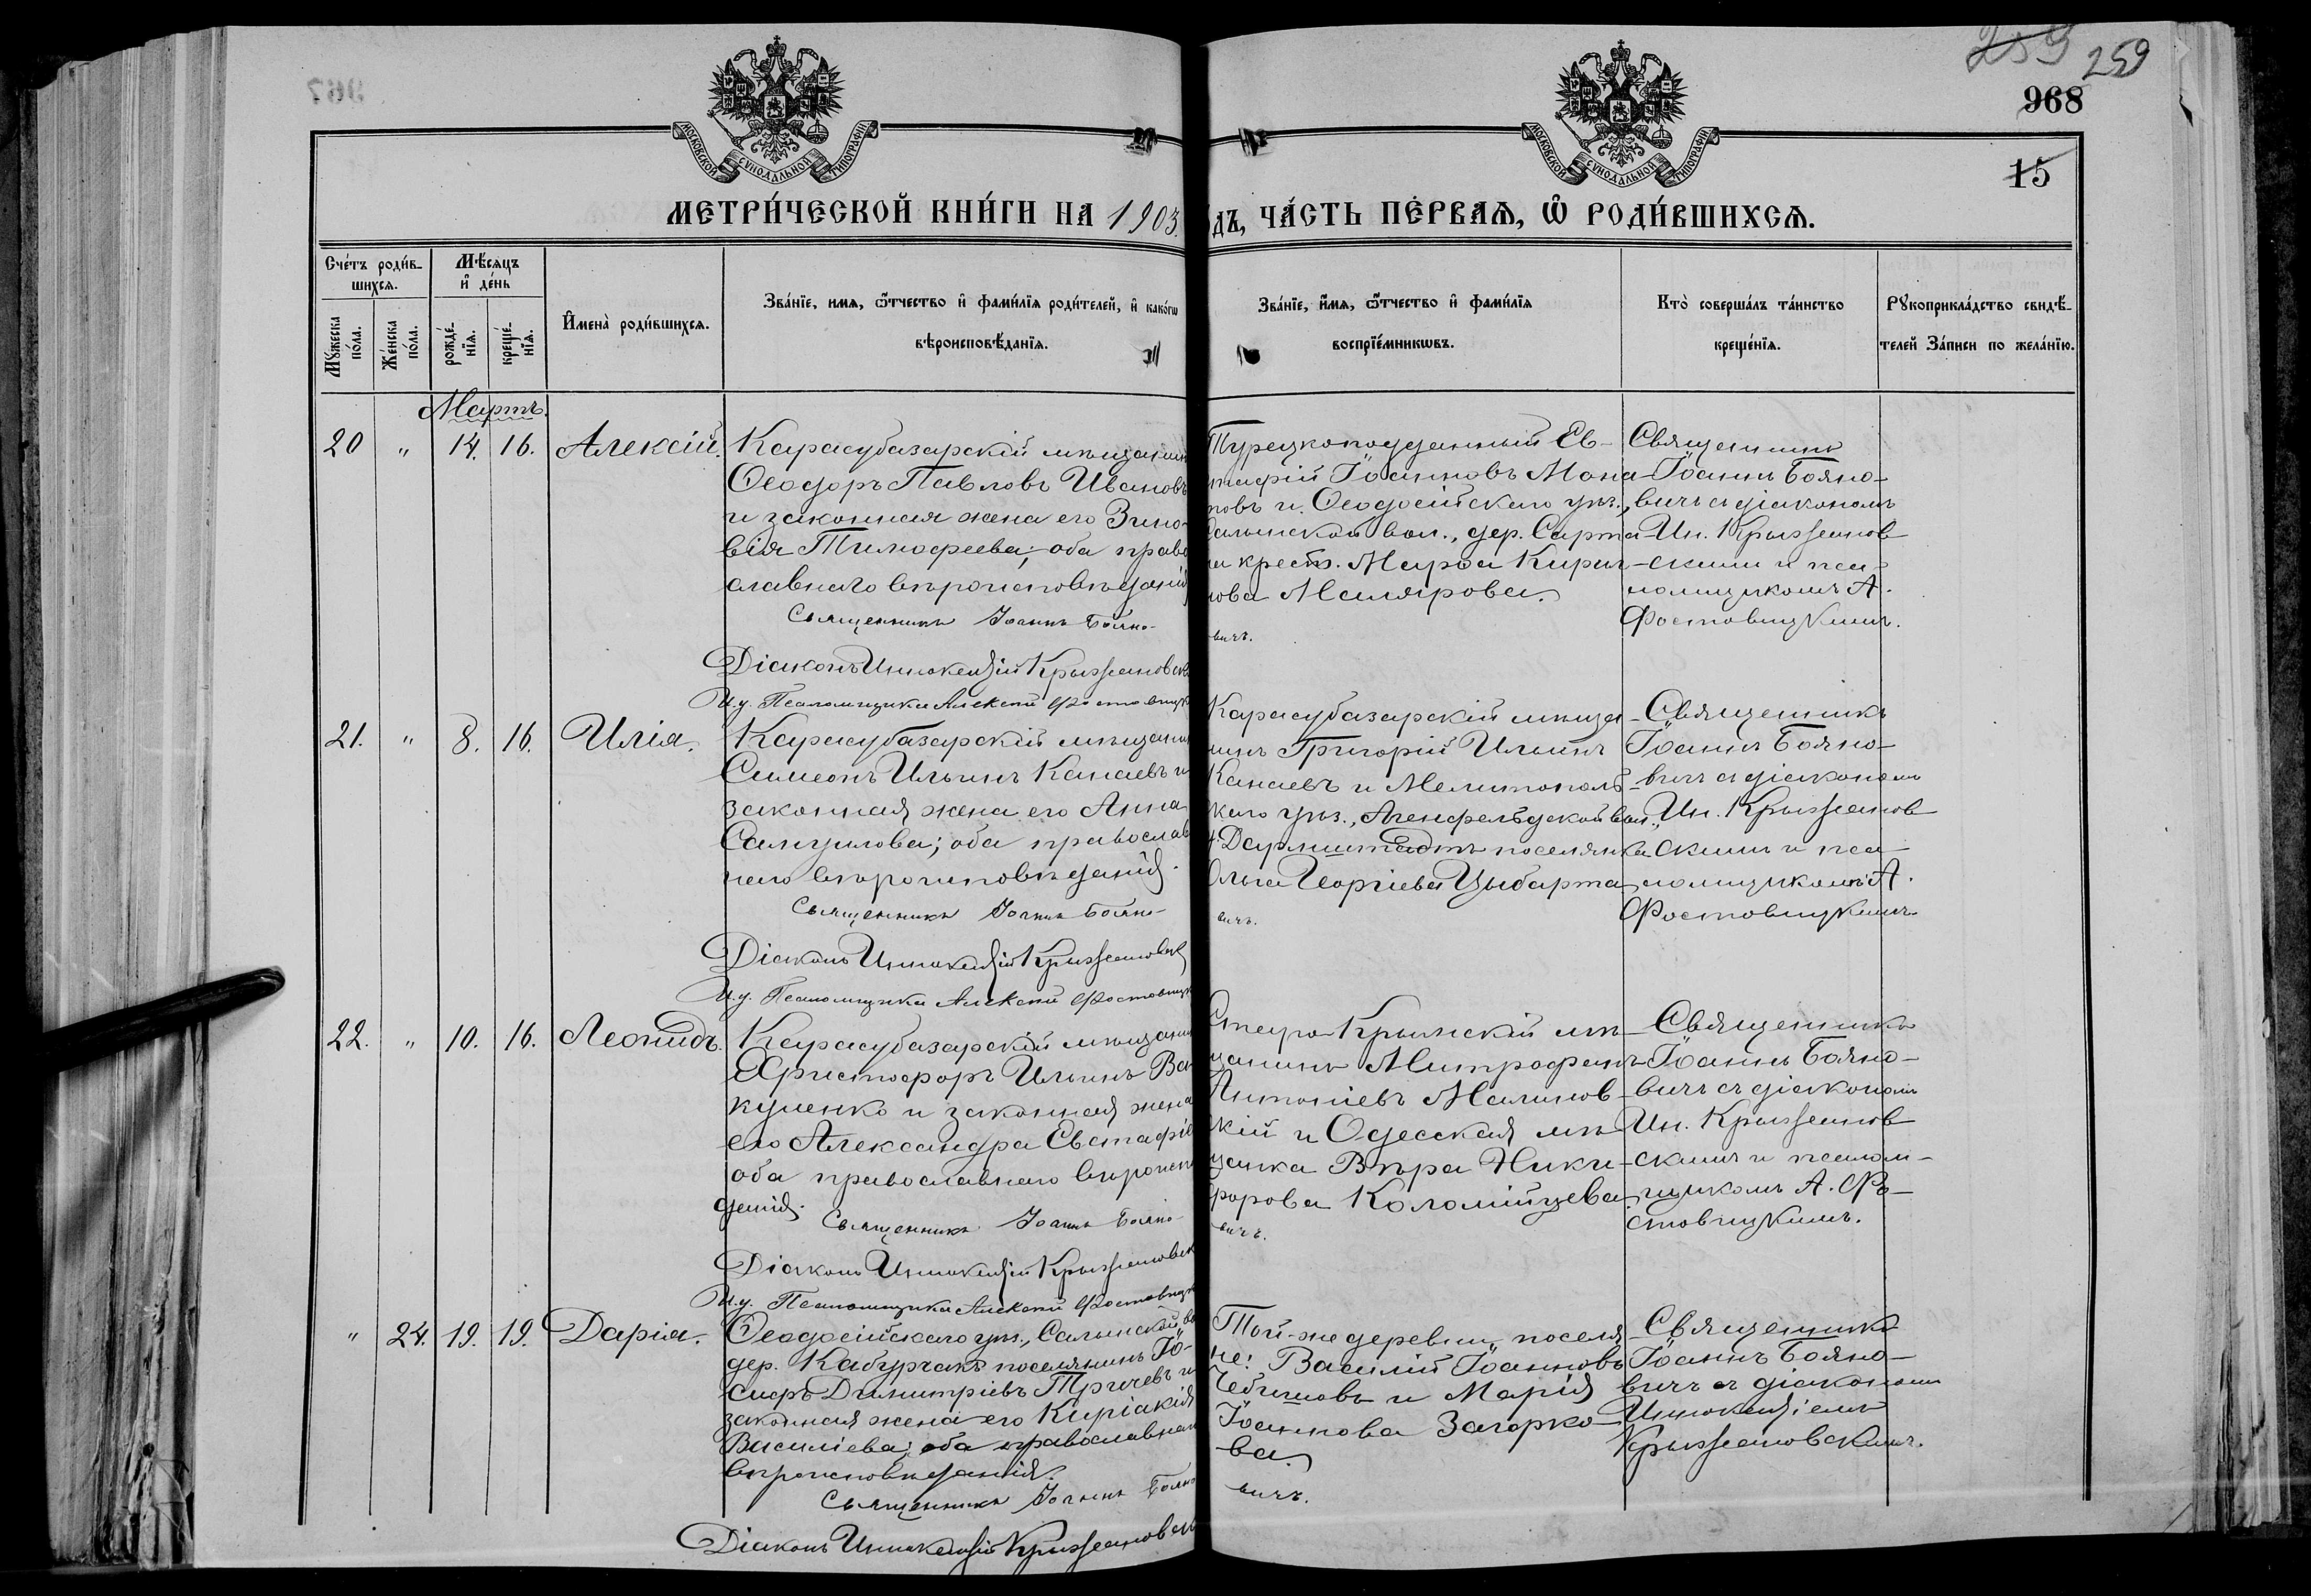 259 259
968
15
МОСКОВСКОЙ СѴНОДАЛЬНОЙ ТИПОГРАФІИ
МОСКОВСКОЙ СѴНОДАЛЬНОЙ ТИПОГРАФІИ
МЕТРИ́ЧЕСКОЙ КНИ́ГИ НА 1903
дъ, ЧА́СТЬ ПЕ́РВАѦ, Ѡ РОДИ́ВШИХСѦ.
Сче́тъ роди́в-
шихсѧ.
Мꙋ́жеска по́ла.
Же́нска по́ла.
Мѣ́сѧцъ
и҆ де́нь
рожде́-
нїѧ.
креще́-
нїѧ.
И҆мена̀ роди́вшихсѧ.
Зва́нїе, имѧ, ѻ҆́тчество и҆ фами́лїѧ роди́телей, и҆ како́гѡ
вѣроисповѣ́данїѧ.
Зва́нїе, и҆́мѧ, ѻ҆́тчество и҆ фами́лїѧ
воспрїе́мникѡвъ.
Кто̀ соверша́лъ та́инство
креще́нїѧ.
Рꙋкоприкла́дство свидѣ́-
телей За́писи по жела́нїю.
Мартъ.
20 " 14. 16. Алексій.
Карасубазарскій мѣщанин
Ѳеодоръ Павловъ Ивановъ
и законная жена его Зино-
вія Тимофеева; оба право
славнаго вѣроисповѣданія
Священникъ Іоаннъ Бояно-
Діаконъ Иннокентій Крыжановск
И. д. Псаломщика Алексѣй Фостовицк
Турецкоподданный Ев-
стафій Іоанновъ Мона
повъ и Ѳеодосійскаго уѣз.,
Салынской вол., дер. Сарта
на крест. Марѳа Кирил
лова Малярова.
вичъ.
Священникъ
Іоаннъ Бояно-
вичъ съ діакономъ
Ин. Крыжанов
-скимъ и пса-
ломщикомъ А.
Фостовицкимъ.
21. " 8. 16. Илія.
Карасубазарскій мѣщанин
Симеонъ Ильинъ Канаевъ и
законная жена его Анна
Самуилова; оба православ
наго вѣроисповѣданія.
Священникъ Іоаннъ Бояно-
Діаконъ Иннокентій Крыжановск
И. д. Псаломщика Алексѣй Фостовицк
Карасубазарскій мѣща
нинъ Григорій Ильинъ
Канаевъ и Мелитополь
скаго уѣз., Эйгенфельдской вол.,
Дармштадтъ поселянка
Ольга Георгіева Цыбарта
вичъ.
Священникъ
Іоаннъ Бояно-
вичъ съ діакономъ
Ин. Крыжанов
скимъ и пса-
ломщикомъ А.
Фостовицкимъ.
22. " 10. 16. Леонидъ.
Карасубазарскій мѣщанин
Христофоръ Ильинъ Ва
куленко и законная жена
его Александра Евстафіе
оба православнаго вѣроиспо
данія.
Священникъ Іоаннъ Бояно-
Діаконъ Иннокентій Крыжановск
И. д. Псаломщика Алексѣй Фостовицк
Старо-Крымскій мѣ
щанинъ Митрофанъ
Антоніевъ Малинов-
скій и Одесская мѣ
щанка Вѣра Ники-
форова Коломійцева
вичъ.
Священникъ
Іоаннъ Бояно-
вичъ съ діакономъ
Ин. Крыжанов
скимъ и псалом-
щикомъ А. Фо-
стовицкимъ.
" 24. 19. 19. Дарія.
Ѳеодосійскаго уѣз., Салынской во
дер. Кабурчакъ поселянинъ Іо-
сифъ Димитріевъ Тричевъ и
законная жена его Киріакія
Василіева; оба православнаго
вѣроисповѣданія.
Священникъ Іоаннъ Бояно
Діаконъ Иннокентій Крыжановск
Той-же деревни, поселя
не: Василій Іоанновъ
Чебишовъ и Марія
Іоаннова Загорко-
ва.
вичъ.
Священникъ
Іоаннъ Бояно-
вичъ съ діакономъ
Иннокентіемъ
Крыжановскимъ.